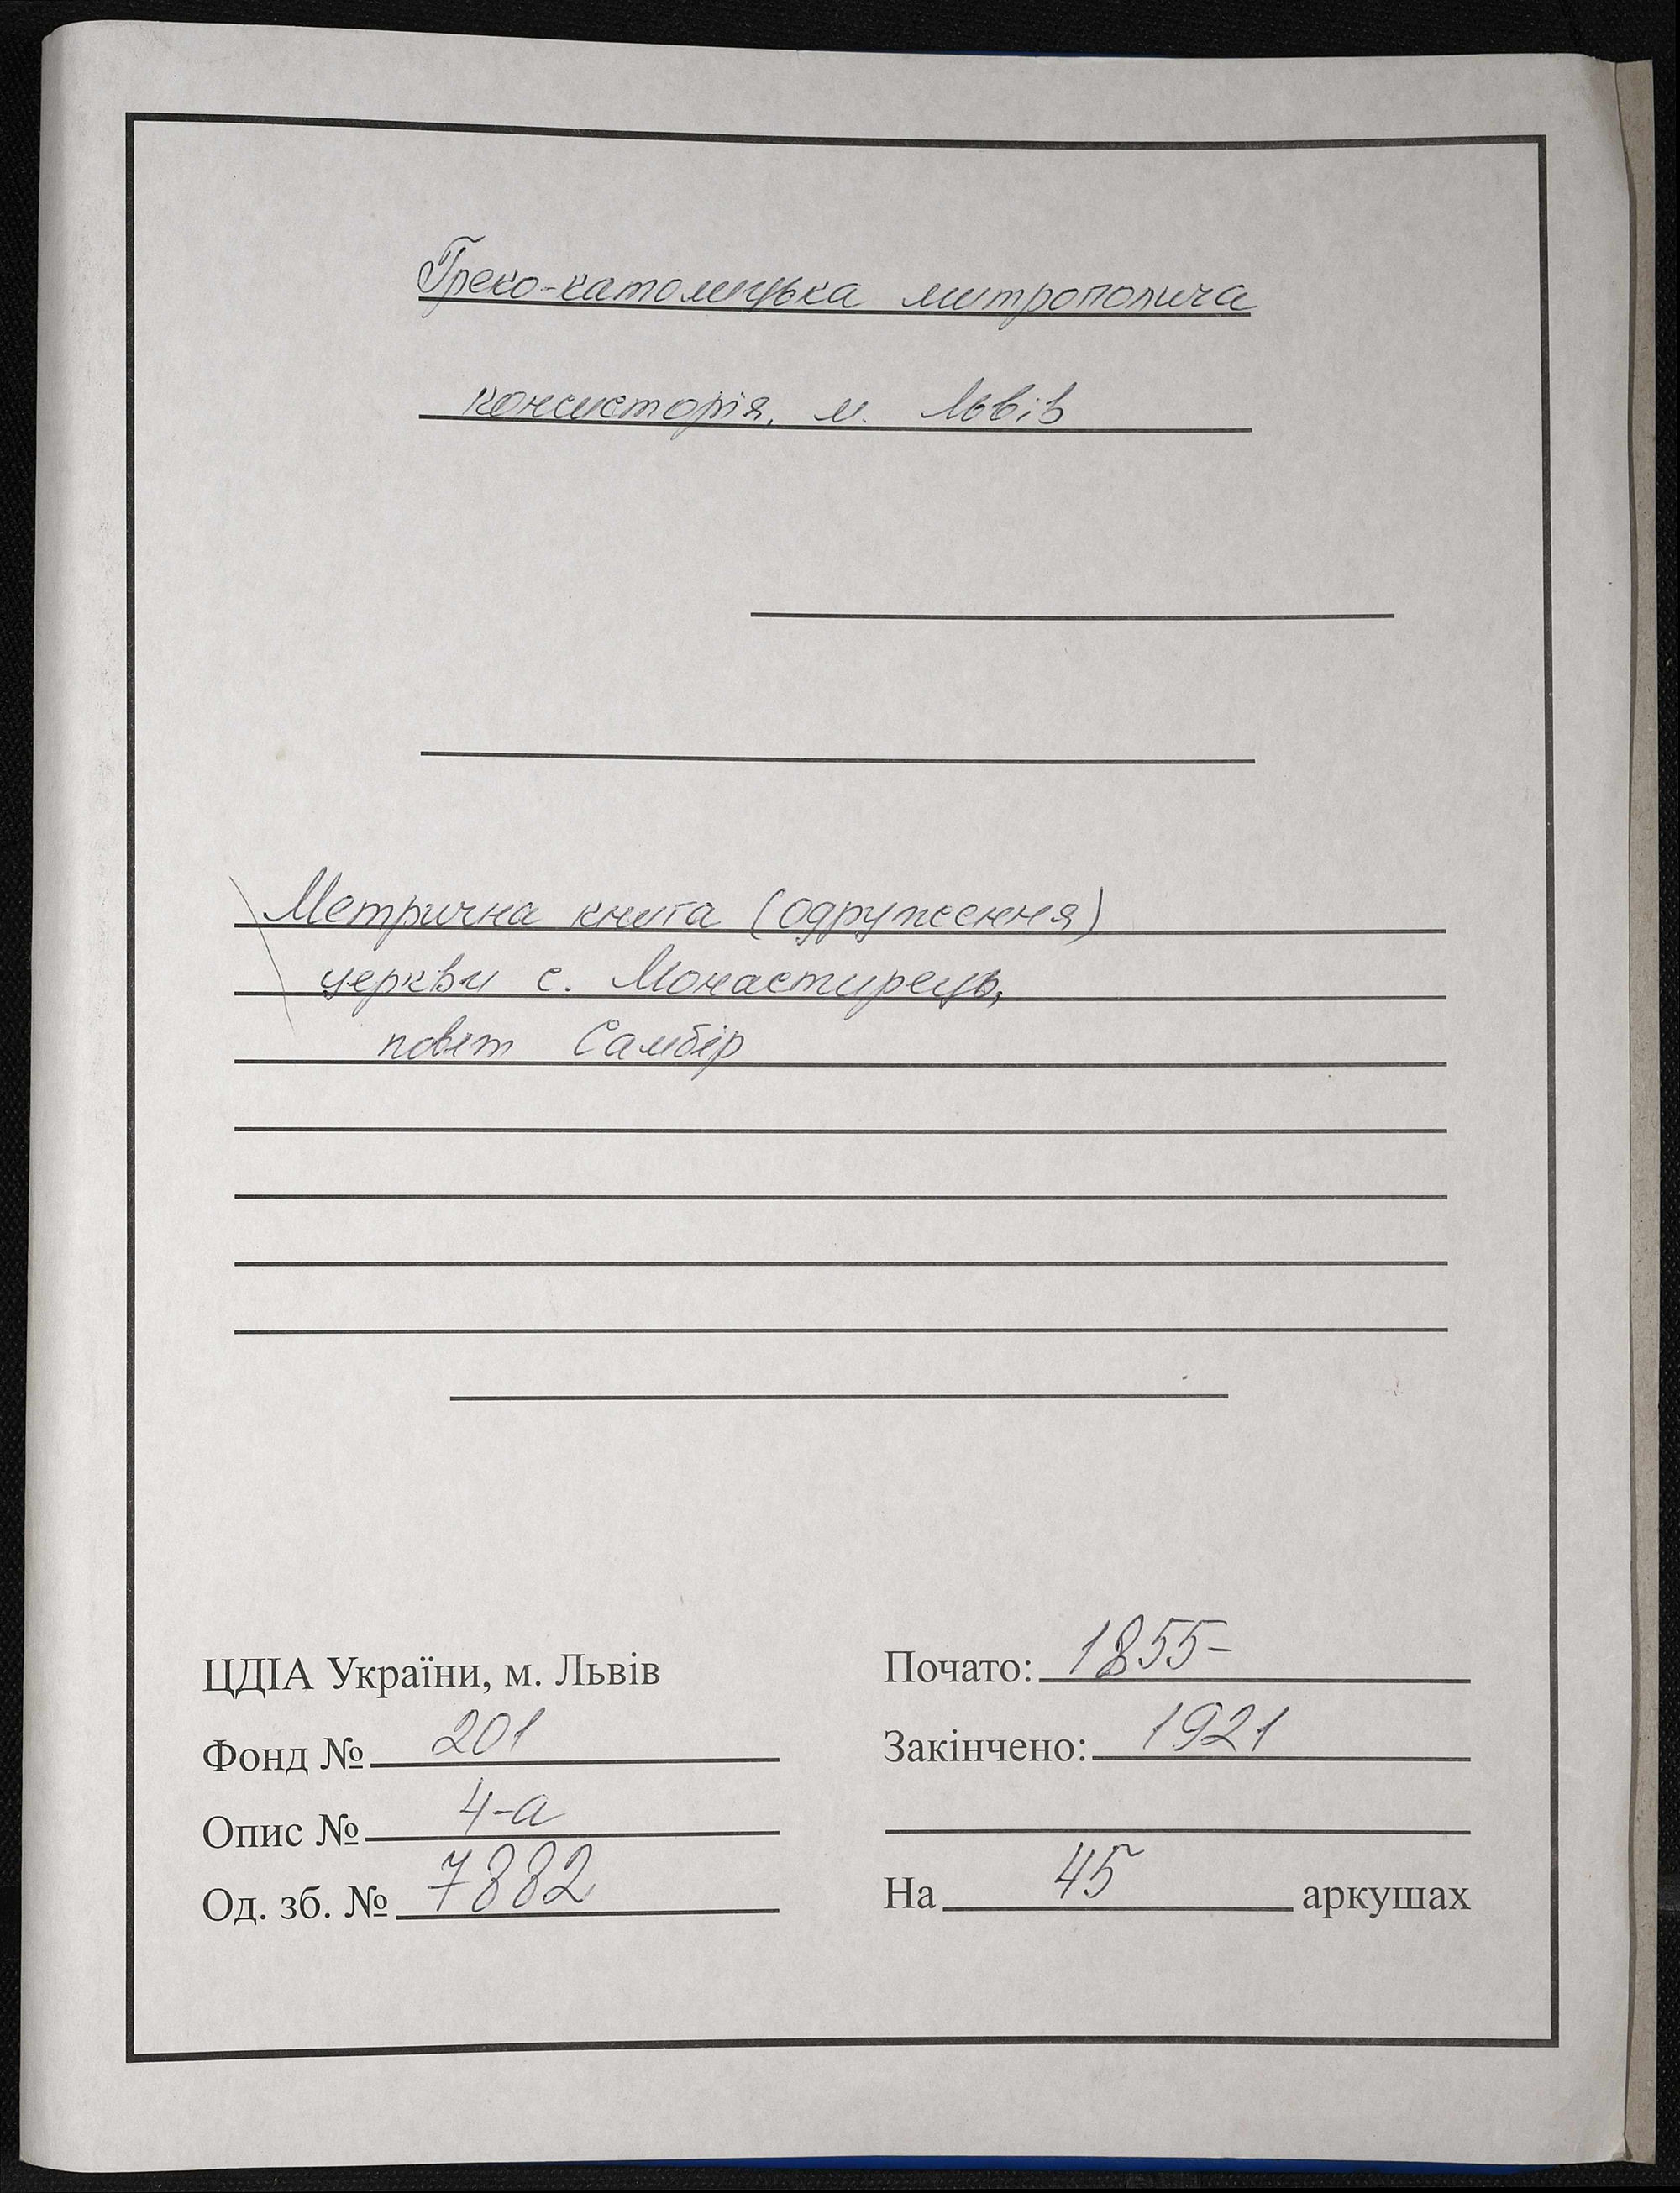 Греко-католицька митрополича
консисторія, м. Львів
Метрична книга (одруження)
церкви с. Монастирець,
повіт Самбір
ЦДІА України, м. Львів
Фонд № 201
Опис № 4-а
Од. зб. № 7882
Почато: 1855-
Закінчено: 1921
На 45 аркушах